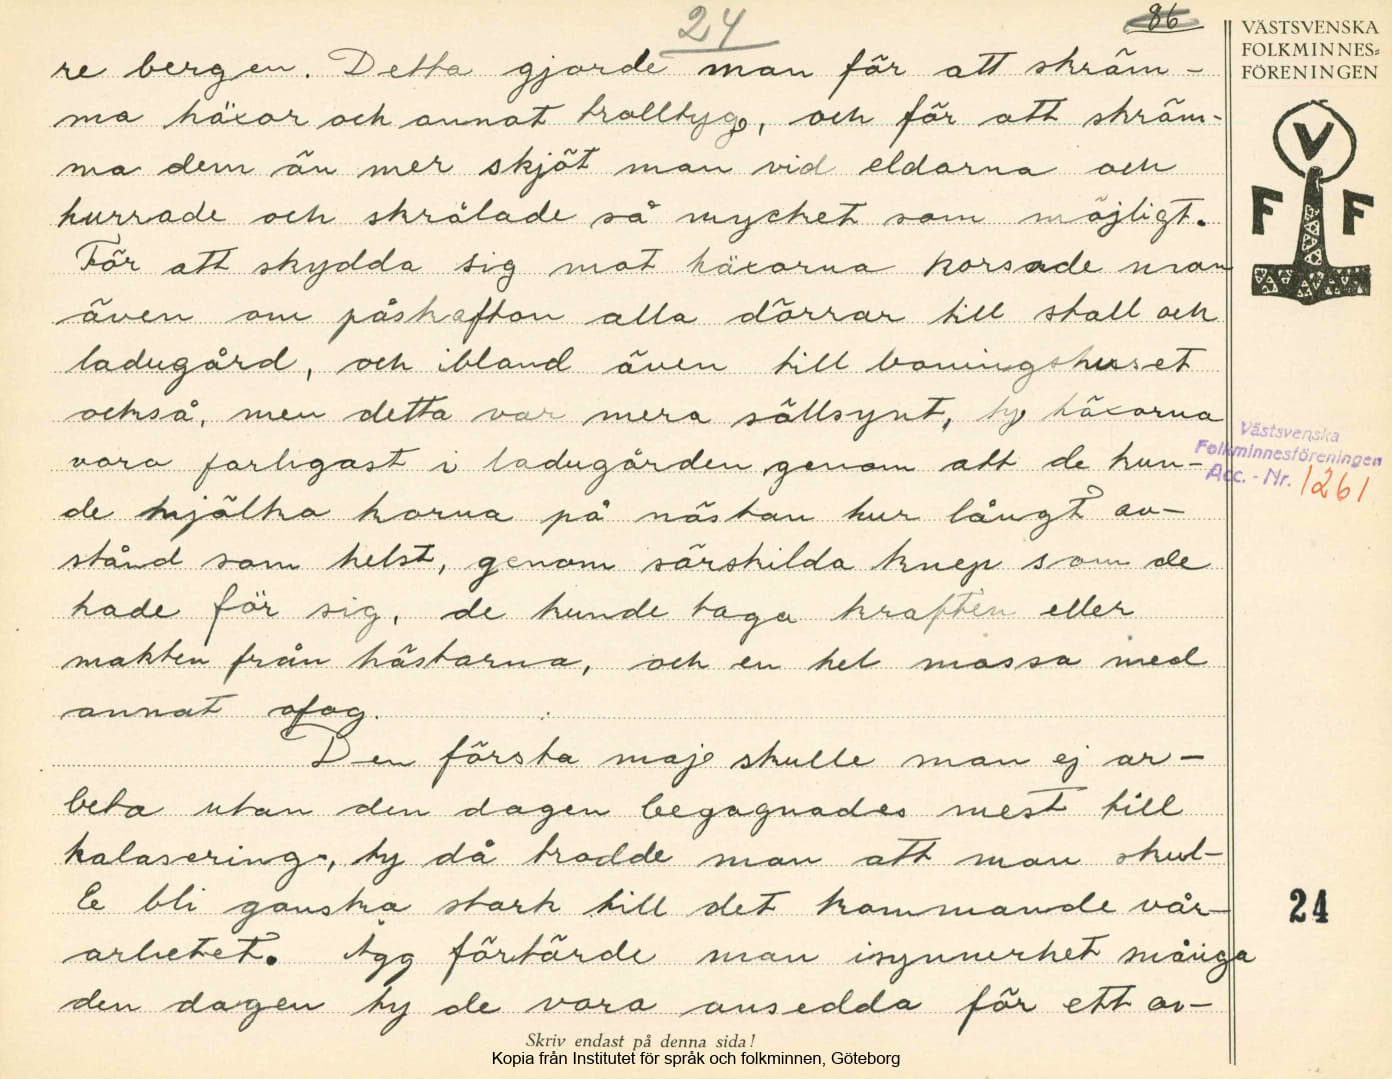 24
86
VÄSTSVENSKA
FOLKMINNES-
FÖRENINGEN
V
F F
re bergen. Detta gjorde man för att skräm-
ma häxor och annat trolltyg, och för att skräm-
ma dem än mer skjöt man vid eldarna och
hurrade och skrålade så mycket som möjligt.
För att skydda sig mot häxorna korsade man
även om påskafton alla dörrar till stall och
ladugård, och ibland även till boningshuset
också, men detta var mera sällsynt, ty häxorna
voro farligast i ladugården genom att de kun-
de mjölka korna på nästan hur långt av-
stånd som helst, genom särskilda knep som de
hade för sig, de kunde taga kraften eller
makten från hästarna, och en hel massa med
annat ofog.
Den första maj skulle man ej ar-
beta utan den dagen begagnades mest till
kalasering, ty då trodde man att man skul-
le bli ganska stark till det kommande vår-
arbetet. Ägg förtärde man isynnerhet många
den dagen ty de voro ansedda för ett av-
Västsvenska
Folkminnesföreningen
Acc. - Nr. 1261
24
Skriv endast på denna sida!
Kopia från Institutet för språk och folkminnen, Göteborg